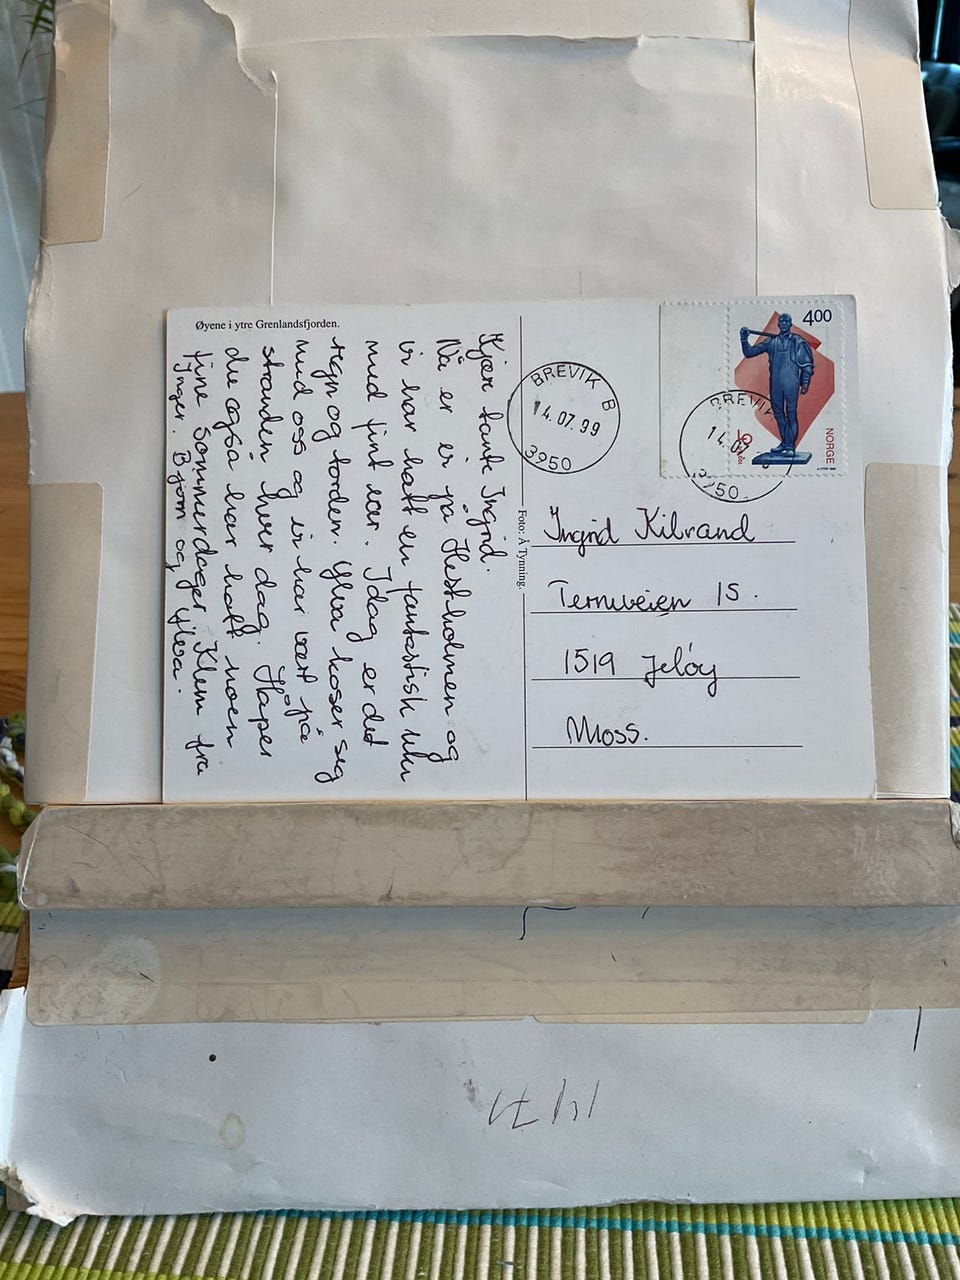 Øyene i ytre Grenlandsfjorden.
Kjær tante Ingrid.
Nå er vi på Hestholmen og
vi har hatt en fantastisk uke
med fint vær. Idag er det
regn og torden. Ylva koser seg
med oss og vi har vært på
stranden hver dag. Håper
du også har hatt noen
fine sommerdager. Klem fra
Inger. Bjørn og Ylva.
Foto: Å Tynning.
BREVIK B
14.07.99
3950
BREVIK
14.07
3950
400
NORGE
Ingrid Kilvand
Terneveien 15.
1519 Jeløy
Moss.